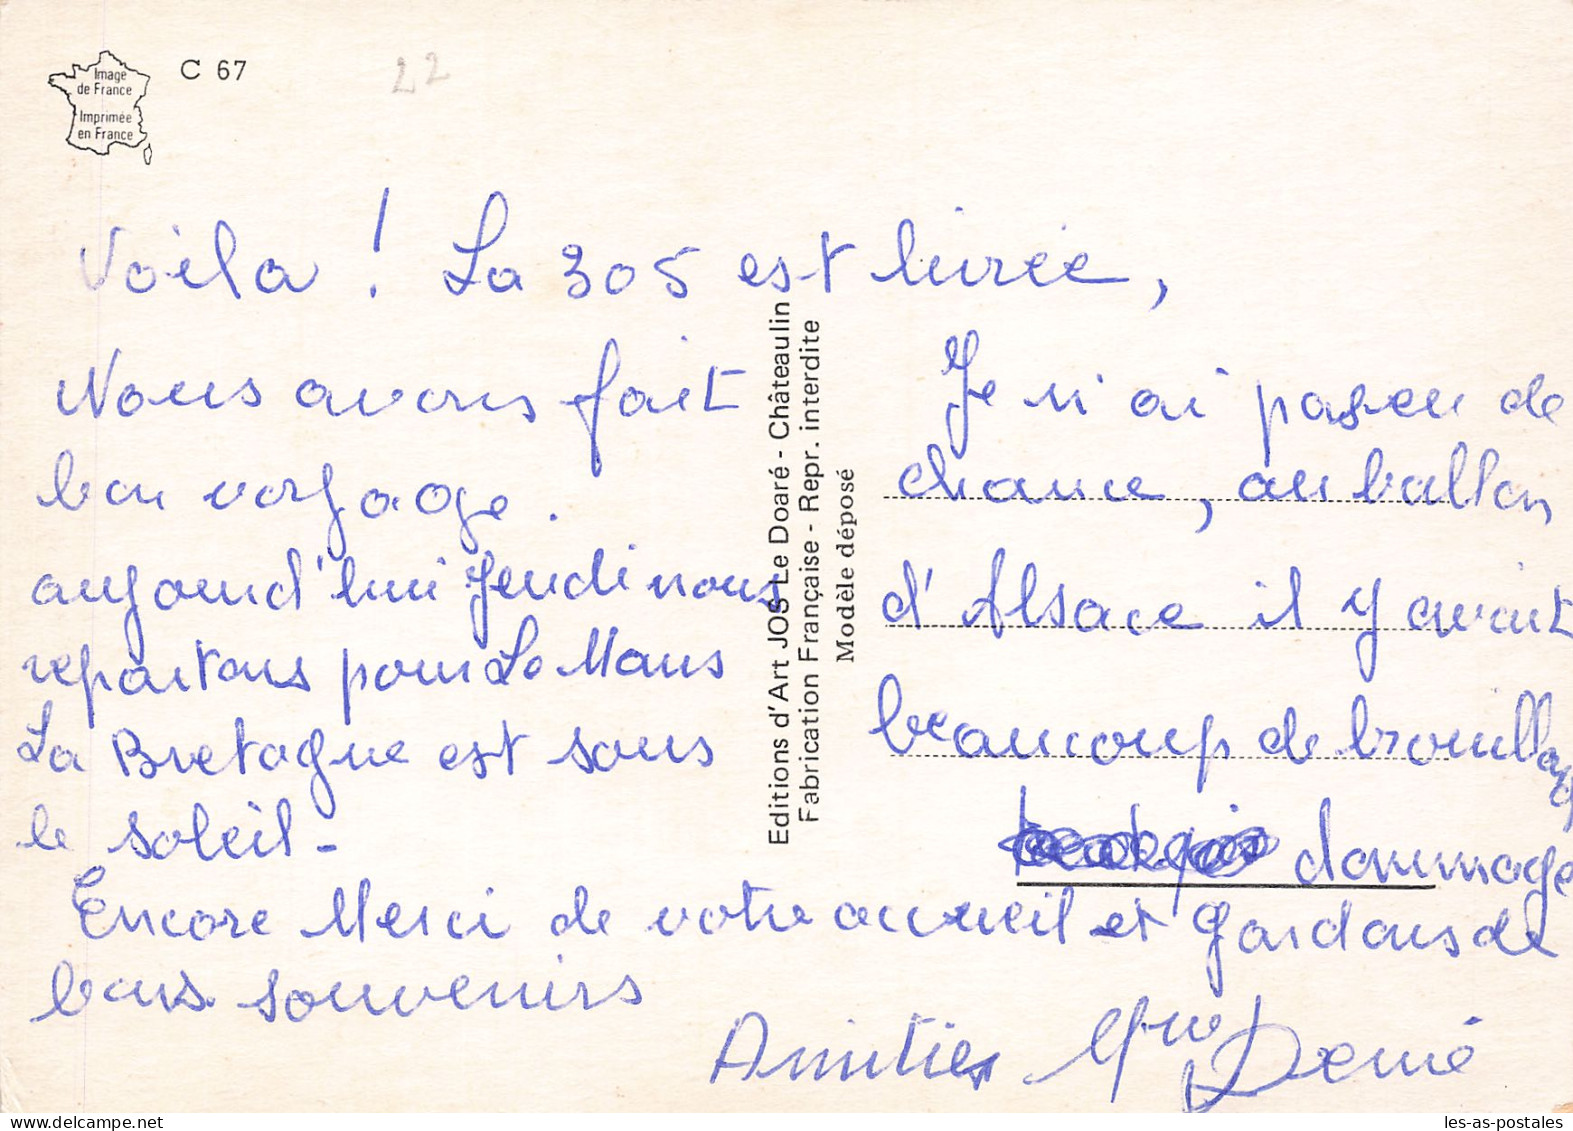 Image
de France
Imprimée
en France
C 67
22
Voila ! La 305 est livrée,
Nous avons fait
bon voyage.
aujourd'hui jeudi nous
repartons pour Le Mans
La Bretagne est sous
le soleil -
Editions d'Art JOS Le Doaré - Châteaulin
Fabrication Française - Repr. interdite
Modèle déposé
Je n'ai pas eu de
chance, au ballon
d'Alsace il y avait
beaucoup de brouillard
dommage
Encore Merci de votre accueil et gardons de
bons souvenirs
Amitiés Mme
les-as-postales